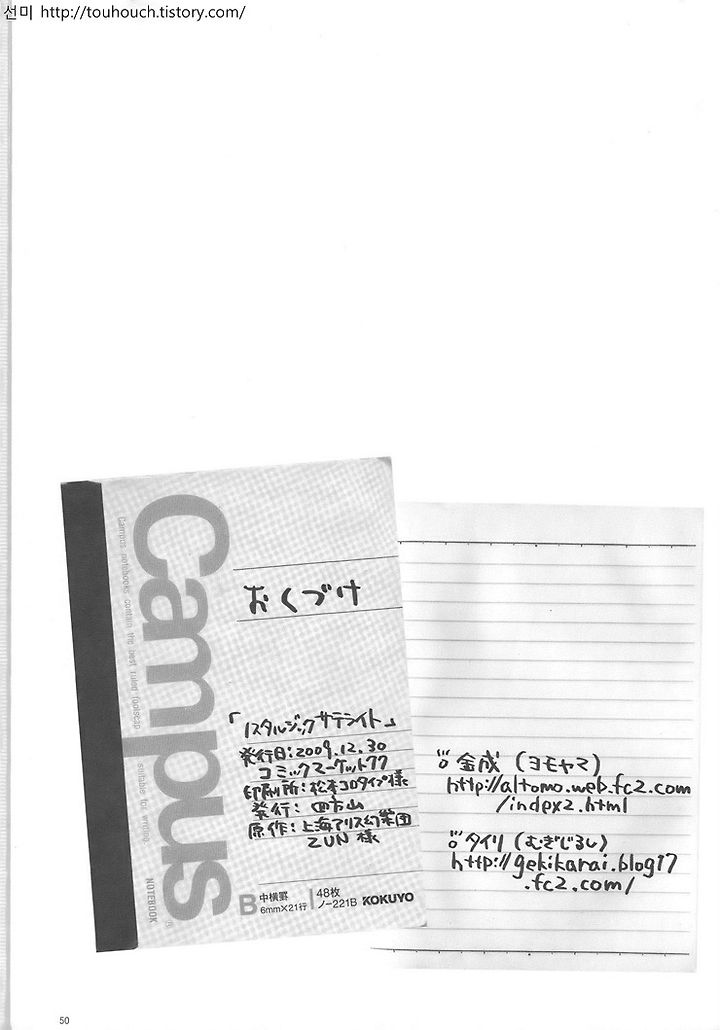 선미 http://touhouch.tistory.com/
Campus
Campus notebooks contain the best ruled foolscap suitable for writing.
NOTEBOOK
おくづけ
「ノスタルジックサテライト」
発行日:2009.12.30
コミックマーケット77
印刷所:松本コロタイプ様
発行:四方山
原作:上海アリス幻樂団
ZUN様
B 中横罫 6mm×21行 48枚 ノー221B KOKUYO
金成(ヨモヤマ)
http://altomo.web.fc2.com
/index2.html
タイリ(むぎじるし)
http://gekikarai.blog17
.fc2.com/
50